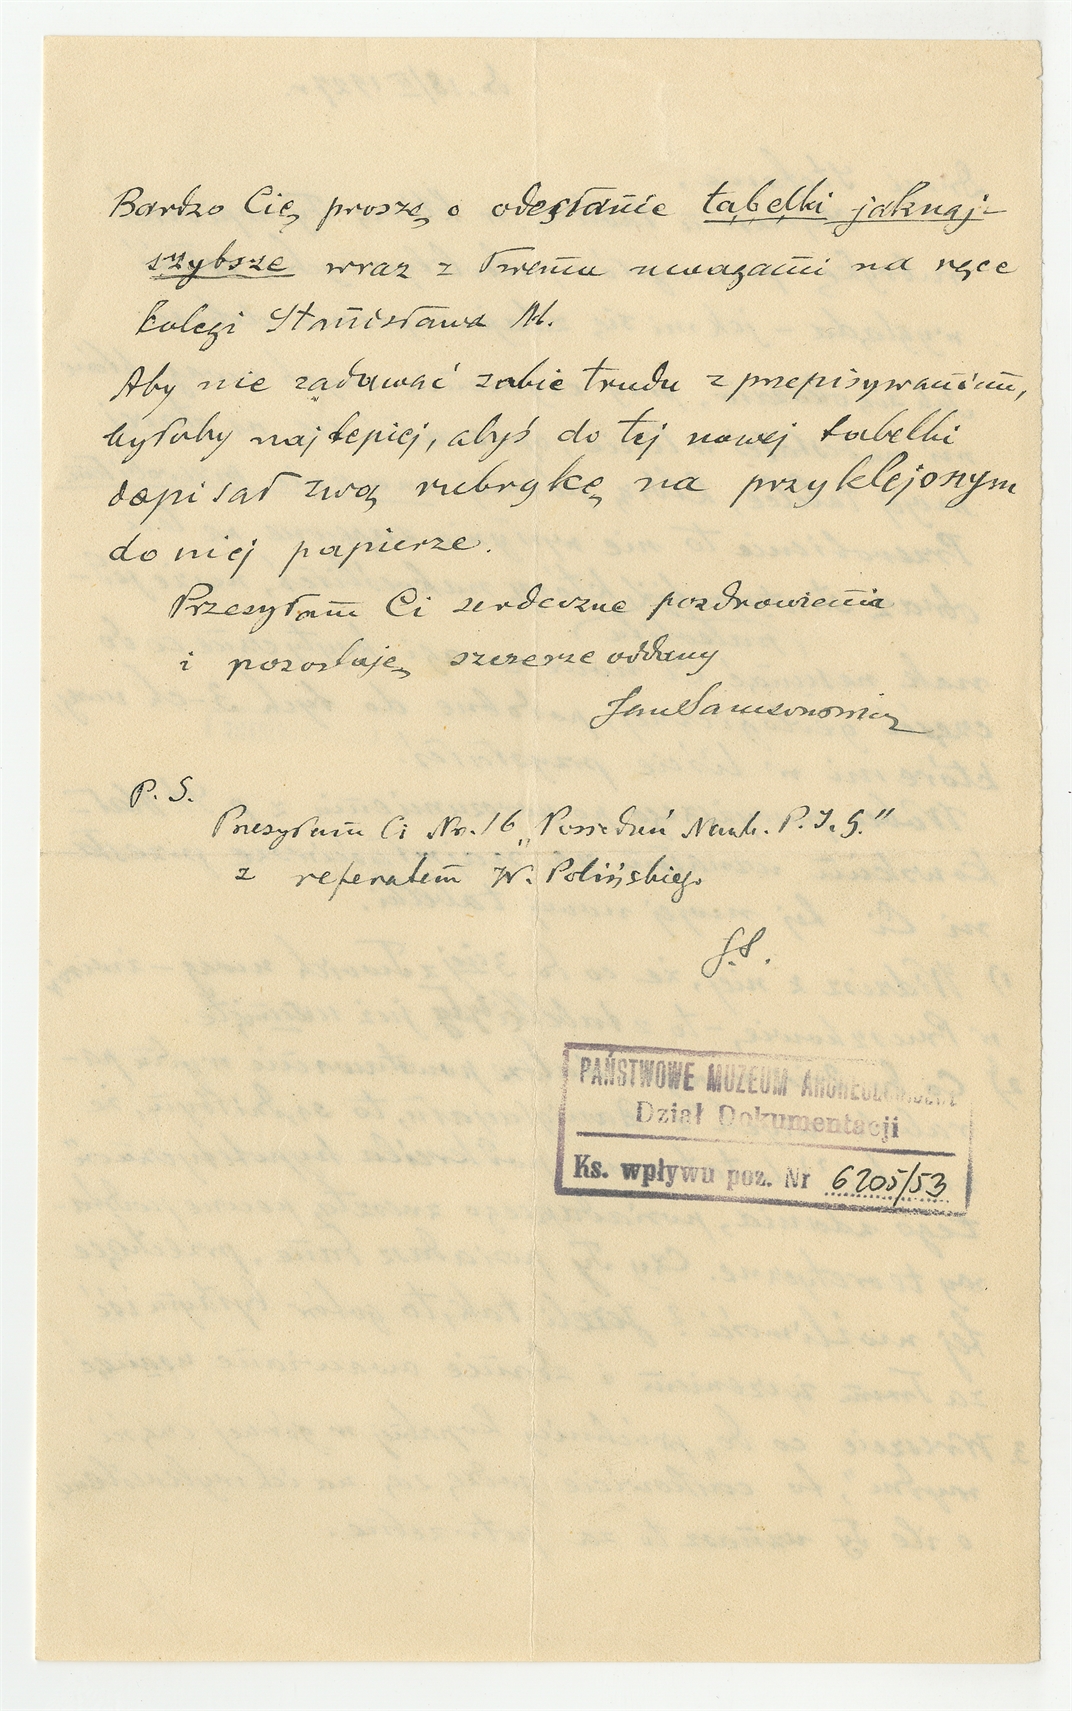 Bardzo Cię proszę o odesłanie tabelki jaknaj-
szybsze wraz z Twemu uwagami na ręce
kolegi Stanisława M.
Aby nie zadawać sobie trudu z przepisywaniem,
byłoby najlepiej, abyś do tej nowej tabelki
dopisał swą rubrykę na przyklejonym
do niej papierze.
Przesyłam Ci serdeczne pozdrowienia
i pozostaję szczerze oddany
Jan Samsonowicz
P. S.
Przesyłam Ci Nr. 16 „Posiedzeń Nauk. P. I. G."
z referatem W. Polińskiego
J.S.
PAŃSTWOWE MUZEUM ARCHEOLOGICZNE
Dział Dokumentacji
Ks. wpływu poz. Nr 6205/53